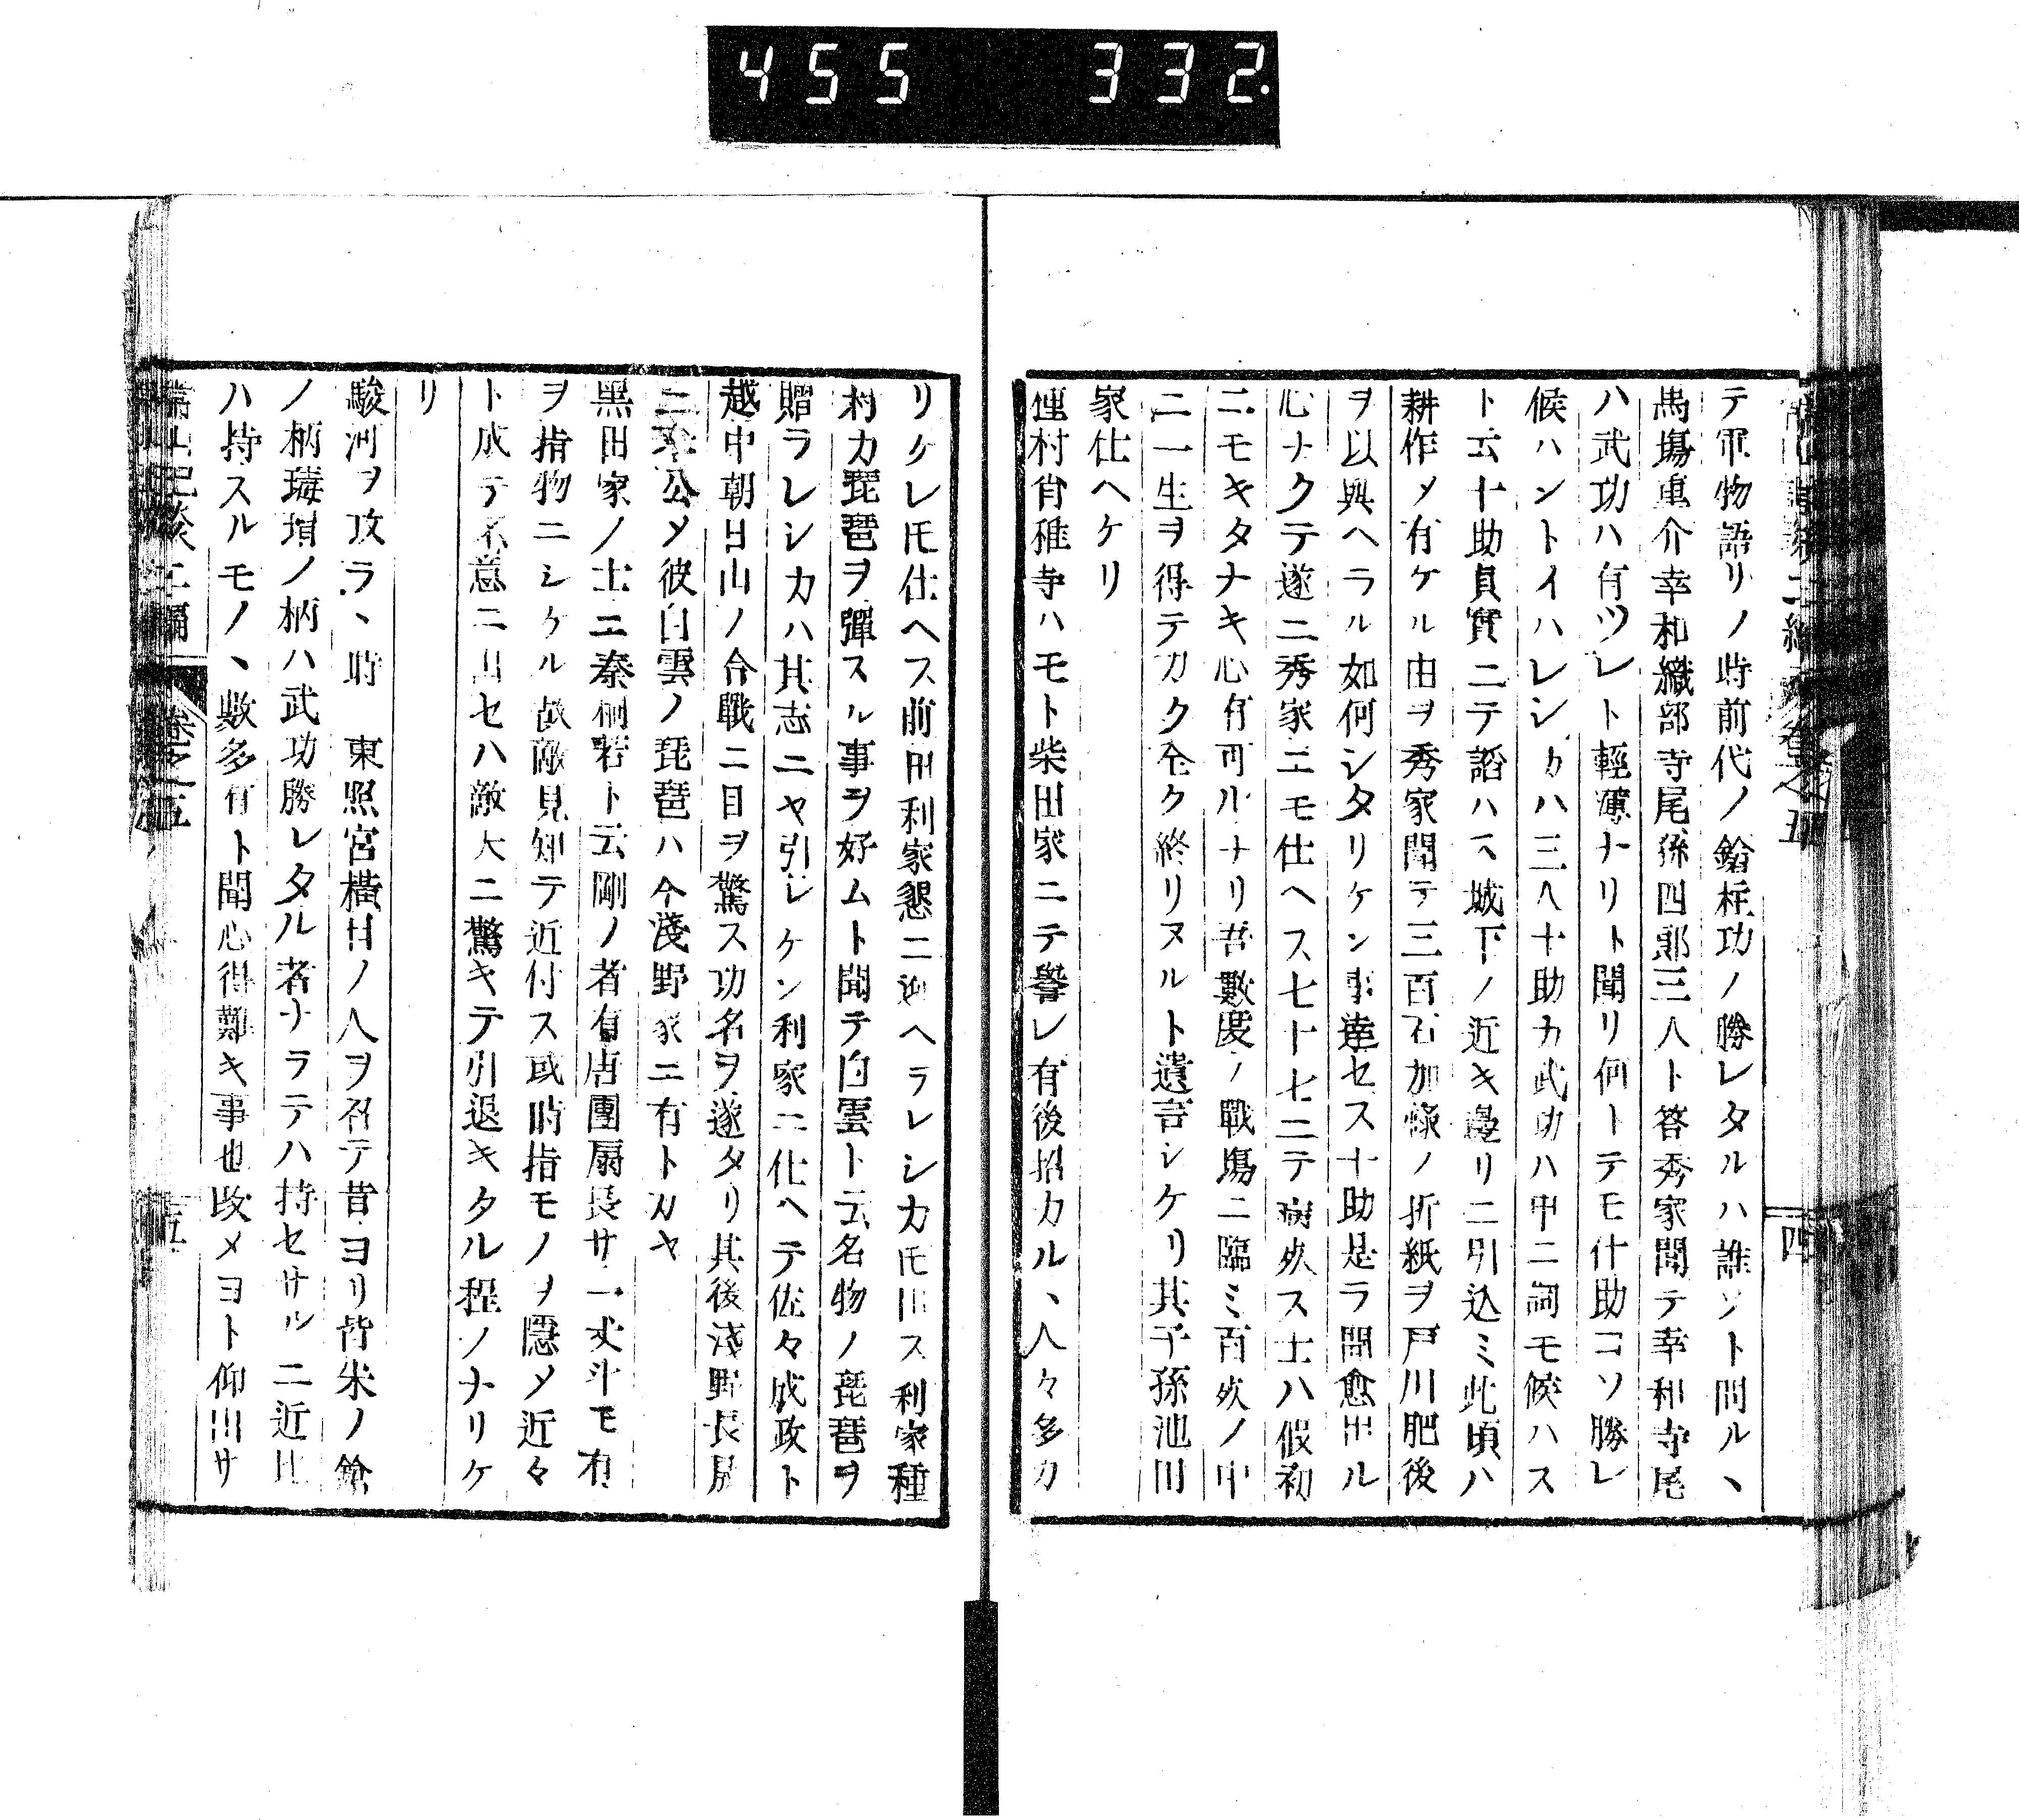 455 332.
テ軍物語リノ時前代ノ鎗柱功ノ勝レタルハ誰ソト問ルヽ
馬塲重介幸和織部寺尾孫四郎三人ト答秀家聞テ幸和寺尾
ハ武功ハ有ツレト輕薄ナリト聞リ何トテモ什助コソ勝レ
候ハントイハレシカハ三人十助カ武功ハ申ニ詞モ候ハス
ト云十助貞實ニテ謟ハス城下ノ近キ邊リニ引込ミ此頃ハ
耕作メ有ケル由ヲ秀家聞テ三百石加煣ノ折紙ヲ戸川肥後
ヲ以與ヘラル如何シタリケン事達セス十助是ラ聞愈出ル
心ナクテ遂ニ秀家ニモ仕ヘス七十七ニテ病死ス士ハ假初
ニモキタナキ心有可ルナリ吾數度ノ戰塲ニ臨ミ百死ノ中
ニ一生ヲ得テカク全ク終リヌルト遺言シケリ其子孫池田
家仕ヘケリ
種村肖稚寺ハモト柴田家ニテ譽レ有後招カルヽ人々多カ
リケレ𪜈仕ヘス前田利家懇ニ迎ヘラレシカ𪜈出ス利家種
村カ琵琶ヲ彈スル事ヲ好ムト聞テ白雲ト云名物ノ琵琶ヲ
贈ラレシカハ其志ニヤ引レケン利家ニ仕ヘテ佐々成政ト
越中朝日山ノ合戰ニ目ヲ驚ス功名ヲ遂タリ其後淺野長晟
ニ奉公メ彼白雲ノ琵琶ハ今淺野家ニ有トカヤ
黑田家ノ士ニ秦桐若ト云剛ノ者有唐團扇長サ一丈斗モ有
ヲ指物ニシケル故敵見知テ近付ス或時指モノヲ隱メ近々
ト成テ不意ニ出セハ敵大ニ驚キテ引退キタル程ノナリケ
リ
駿河ヲ攻ラヽ時 東照宮橫目ノ人ヲ召テ昔ヨリ皆朱ノ鎗
ノ柄瑇瑁ノ柄ハ武功勝レタル者ナラテハ持セサルニ近比
ハ持スルモノヽ數多有ト聞心得難キ事也改メヨト仰出サ